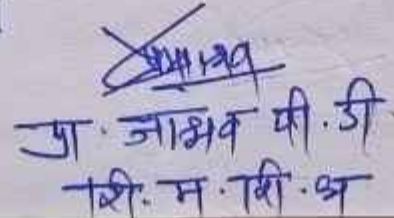 प्रा. जाधव पी.डी
शि. म. शि. अ